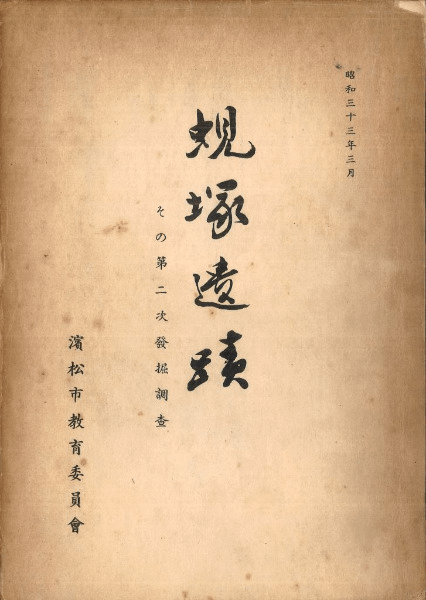 昭和三十三年三月
蜆塚遺蹟
その第二次發掘調查
濱松市教育委員會